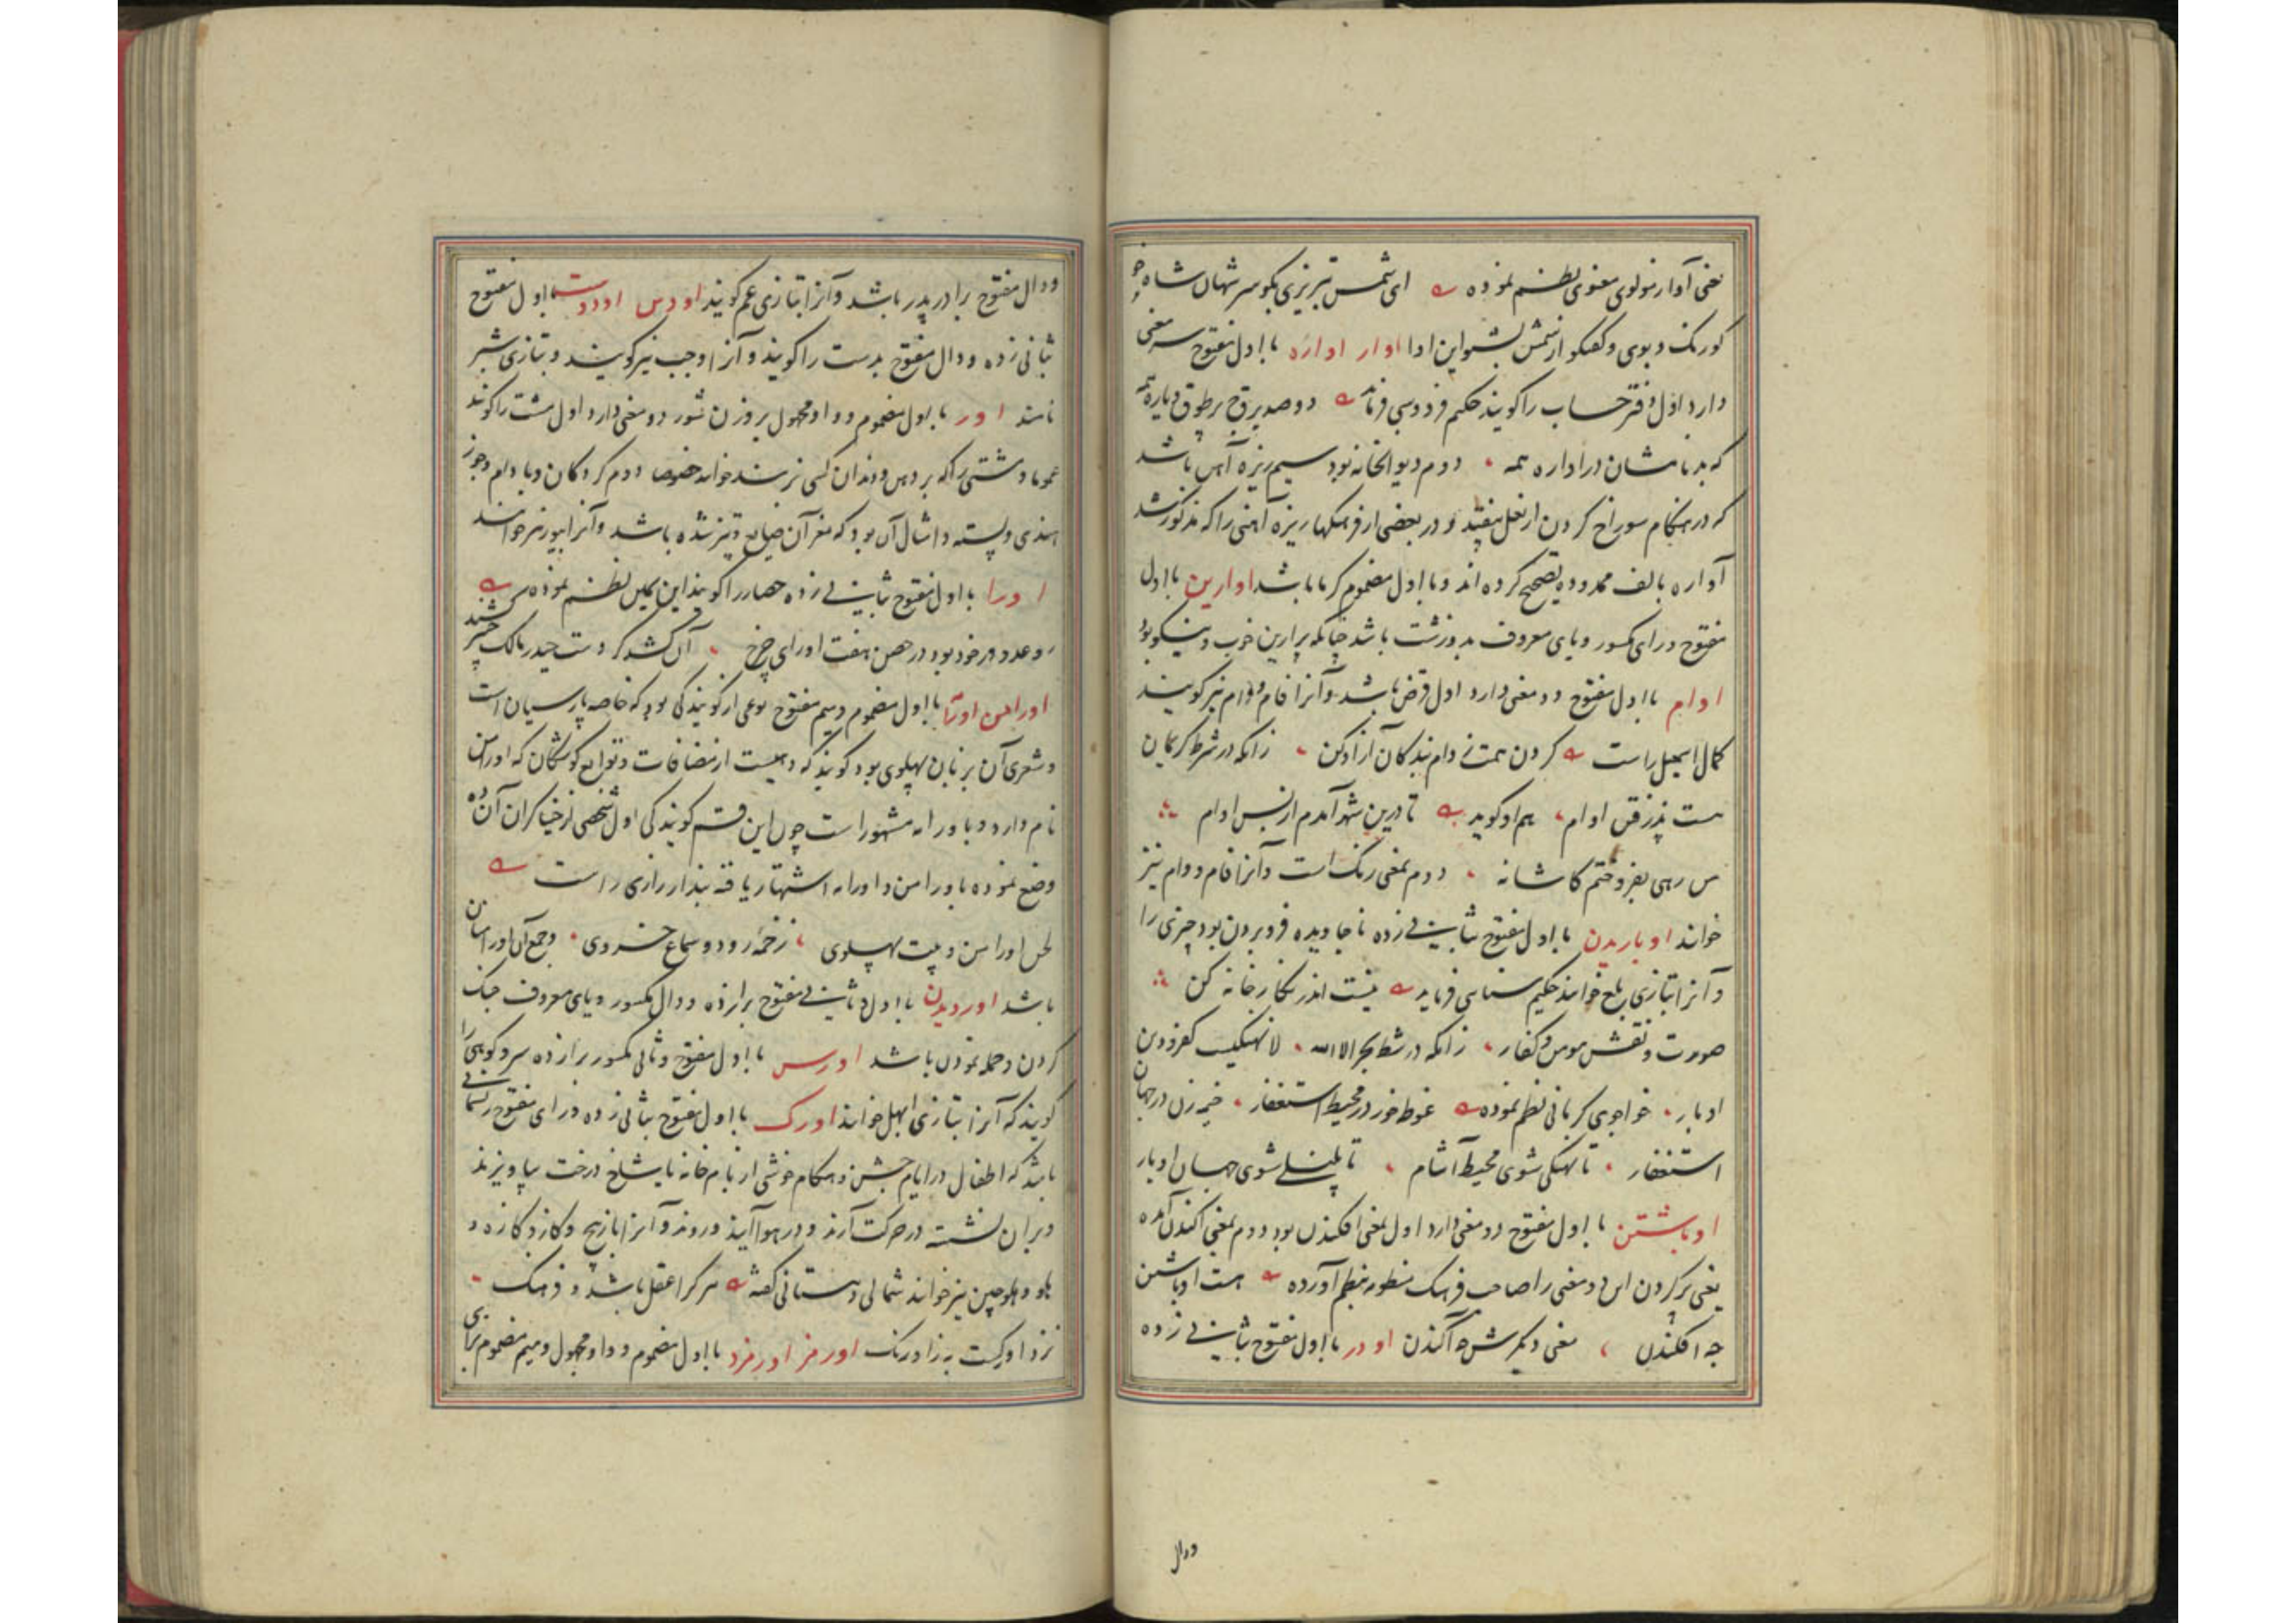 معنی آوار مولوی معنوی نظم نموده ای شمس تبریزی بگو سر شهان شاه خو
کو رنگ و بوی و گفتگو از شمس بشنو این ادا اوار اواره با اول مفتوح سه معنی
دارد اول دفتر حساب را گویند حکیم فردوسی فرماید دو صد برق بر طوق و یاره همه
که بد نامشان در اواره همه دوم دیوانخانه بود سیم ریزه آهن باشد
که در هنگام سوراخ کردن از نعل بیفتد و در بعضی از فرهنگها ریزه آهنی را که مذکور شد
آواره بالف ممدوده تصحیح کرده اند و با اول مضموم گرما باشد اوارین با اول
مفتوح و رای مکسور و یای معروف بد و زشت باشد چنانکه برارین خوب و نیکو بود
اوام با اول مفتوح دو معنی دارد اول قرض باشد و آنرا فام و وام نیز گویند
کمال اسمعیل راست گردن همت ز دام بندگان آزاد کن زانکه در شرط کریمان
هست پذرفتن اوام هم او گوید تا درین شهر آمدم از بس اوام
بس رهی بفروختم کاشانه دوم بمعنی رنگ است و آنرا فام و وام نیز
خوانند اوباریدن با اول مفتوح بثانی زده ناجاویده فرو بردن بود چیزی را
و آنرا بتازی بلع خوانند حکیم سنایی فرماید نیست اندر نگارخانه کن
صورت و نقش مومن و کفار زانکه در شط بحر الا الله لا نهنگیست کفر و دین
اوبار خواجوی کرمانی نظم نموده غوطه خور در محیط استغفار خیمه زن در جهان
استغفار تا نهنگی شوی محیط آشام تا پلنگی شوی جهان اوبار
اوباشتن با اول مفتوح دو معنی دارد اول بمعنی افکندن بود دوم بمعنی آکندن آمده
یعنی پر کردن این دو معنی را صاحب فرهنگ منظومه بنظم آورده هست اوباشتن
چه افکندن معنی دیگرش چه آکندن اودر با اول مفتوح بثانی زده
ودال
ودال مفتوح برادر پدر باشد و آنرا بتازی عم گویند اودس اودست با اول مفتوح
بثانی زده و دال مفتوح بدست را گویند و آنرا وجب نیز گویند و بتازی شبر
نامند اور با اول مضموم و واو مجهول بر وزن شور دو معنی دارد اول مشت را گویند
عموما و مشتی را که بر دهن و دندان کسی زنند خوانند خصوصا دوم گردکان و بادام و جوز
هندی و پسته و امثال آن بود که مغز آن ضایع و تیز شده باشد و آنرا پیور نیز خوانند
اورا با اول مفتوح بثانی زده حصار را گویند ابن یمین نظم نموده
روعدو در خود بود در حصن هفت اورای چرخ آن کشد کز دست حیدر مالک خیبر کشید
اورامن اورامه با اول مضموم و میم مفتوح نوعی از گویندگی بود که خاصه پارسیان است
و شعری آن بزبان پهلوی بود گویند که دهیست از مضافات و توابع کوشکان که اورامن
نام دارد و باورامه مشهور است چون این قسم گویندگی اول شخصی از خنیاگران آن ده
وضع نموده باورامن و اورامه اشتهار یافته بندار رازی راست
لحن اورامن و بیت پهلوی زخمه رود و سماع خسروی و جمع آن اورامنان
باشد اوردیدن با اول و ثانی مفتوح برا زده و دال مکسور و یای معروف جنگ
کردن و حمله نمودن باشد اورس با اول مفتوح و ثانی مکسور برا زده سرو کوهی را
گویند که آنرا بتازی ابهل خوانند اورک با اول مفتوح بثانی زده و رای مفتوح ریسمانی
باشد که اطفال در ایام جشن و هنگام خوشی از بام خانه یا شاخ درخت بیاویزند
و بر آن نشسته در حرکت آرند و در هوا آیند و روند و آنرا بازپیچ و کاز و کازه و
باو و هلوچین نیز خوانند شمالی دهستانی گفته هر کرا عقل باشد و فرهنگ
نزد او یکیست به ز اورنگ اورمز اورمزد با اول مضموم و واو مجهول و میم مضموم برای